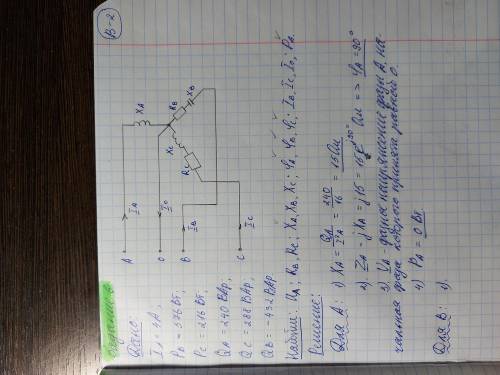 В-2
Дано:
I_A = 4А,
P_B = 576 Вт,
P_C = 216 Вт,
Q_A = 240 ВАр,
Q_C = 288 ВАр,
Q_B = -432 ВАр
A
I_A
X_A
O
I_0
B
I_B
C
I_C
R_B
X_B
X_C
R_C
Найти: U_A; R_B, R_C; X_A, X_B, X_C; φ_A, φ_B, φ_C; I_B, I_C, I_0; P_A.
Решение:
Для A: 1) X_A = Q_A / I²_A = 240 / 16 = 15 Ом
2) Z_A = jX_A = j15 = 15e^{j90°} Ом => φ_A = 90°
3) U_A - фазное напряжение фазы A, на-
чальная фаза которого принята равной 0.
4) P_A = 0 Вт.
Для B: 1).